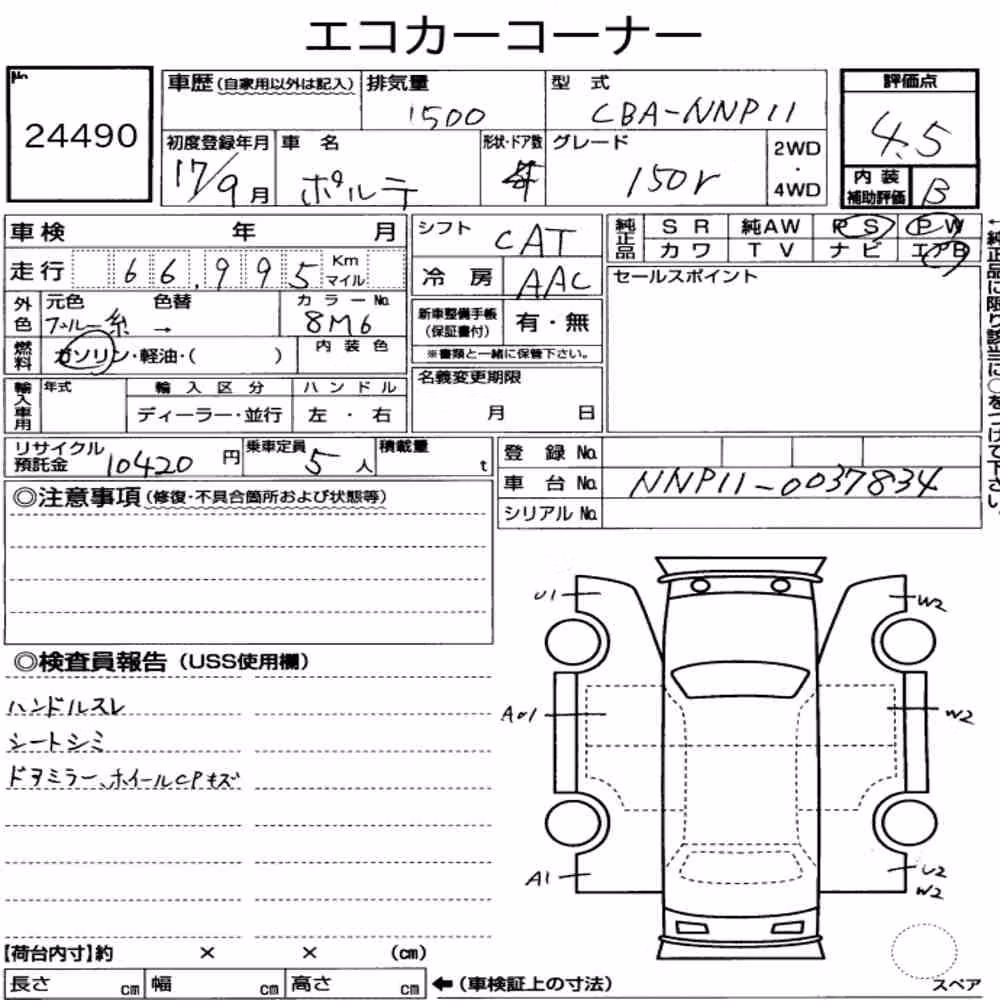 エコカーコーナー
No.
24490
車歴(自家用以外は記入) 排気量 型 式
1500 CBA-NNP11
初度登録年月 車 名 形状・ドア数 グレード 2WD・4WD
17/9月 ポルテ 150r
評価点
4.5
内装補助評価 B
車検 年 月
走行 66,995 Km マイル
外色 元色 色替 カラーNo.
ブルー系 → 8M6
燃料 ガソリン・軽油・( ) 内装色
輸入車用 年式 輸入区分 ハンドル
ディーラー・並行 左・右
シフト CAT
冷 房 AAC
新車整備手帳(保証書付) 有・無
※書類と一緒に保管下さい。
名義変更期限
月 日
純正品 SR 純AW PS PW
カワ TV ナビ エアB
セールスポイント
←純正品に限り該当に○をつけて下さい。
リサイクル預託金 10420円 乗車定員 5人 積載量 t
登録No.
車台No. NNP11-0037834
シリアルNo.
◎注意事項(修復・不具合箇所および状態等)
◎検査員報告(USS使用欄)
ハンドルスレ
シートシミ
ドアミラー、ホイールCPキズ
U1 W2
A01 W2
A1 U2
W2
【荷台内寸】約 × × (cm)
長さ cm 幅 cm 高さ cm ←(車検証上の寸法)
スペア